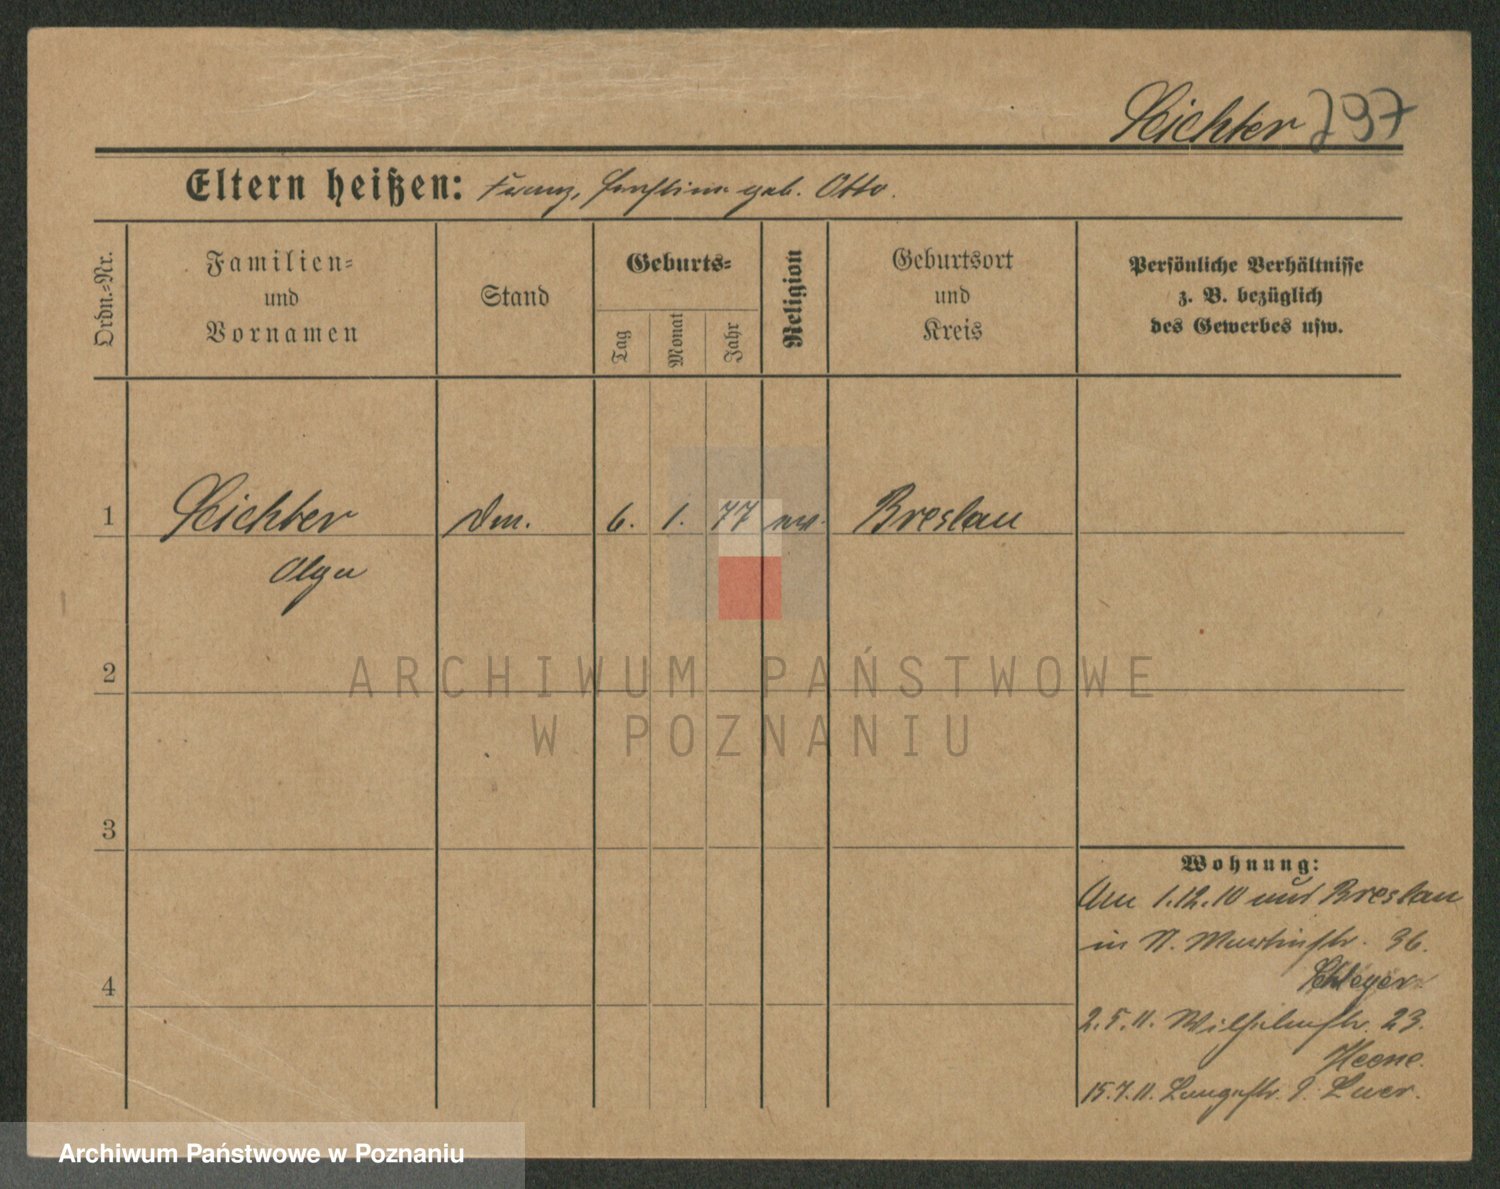 Richter 797
Eltern heißen: Franz, geb. Otto.
Ordn.=Nr.
Familien=
und
Vornamen
Stand
Geburts=
Tag
Monat
Jahr
Religion
Geburtsort
und
Kreis
Persönliche Verhältnisse
z. B. bezüglich
des Gewerbes usw.
1 Richter 6. 1. 77 Breslau
Olga
2
3
4
ARCHIWUM PAŃSTWOWE
W POZNANIU
Wohnung:
Am 1.12.10 aus Breslau
in St. Martinstr. 36.
2.5.11. Wilhelmstr. 23.
15.7.11. Langestr.
Archiwum Państwowe w Poznaniu